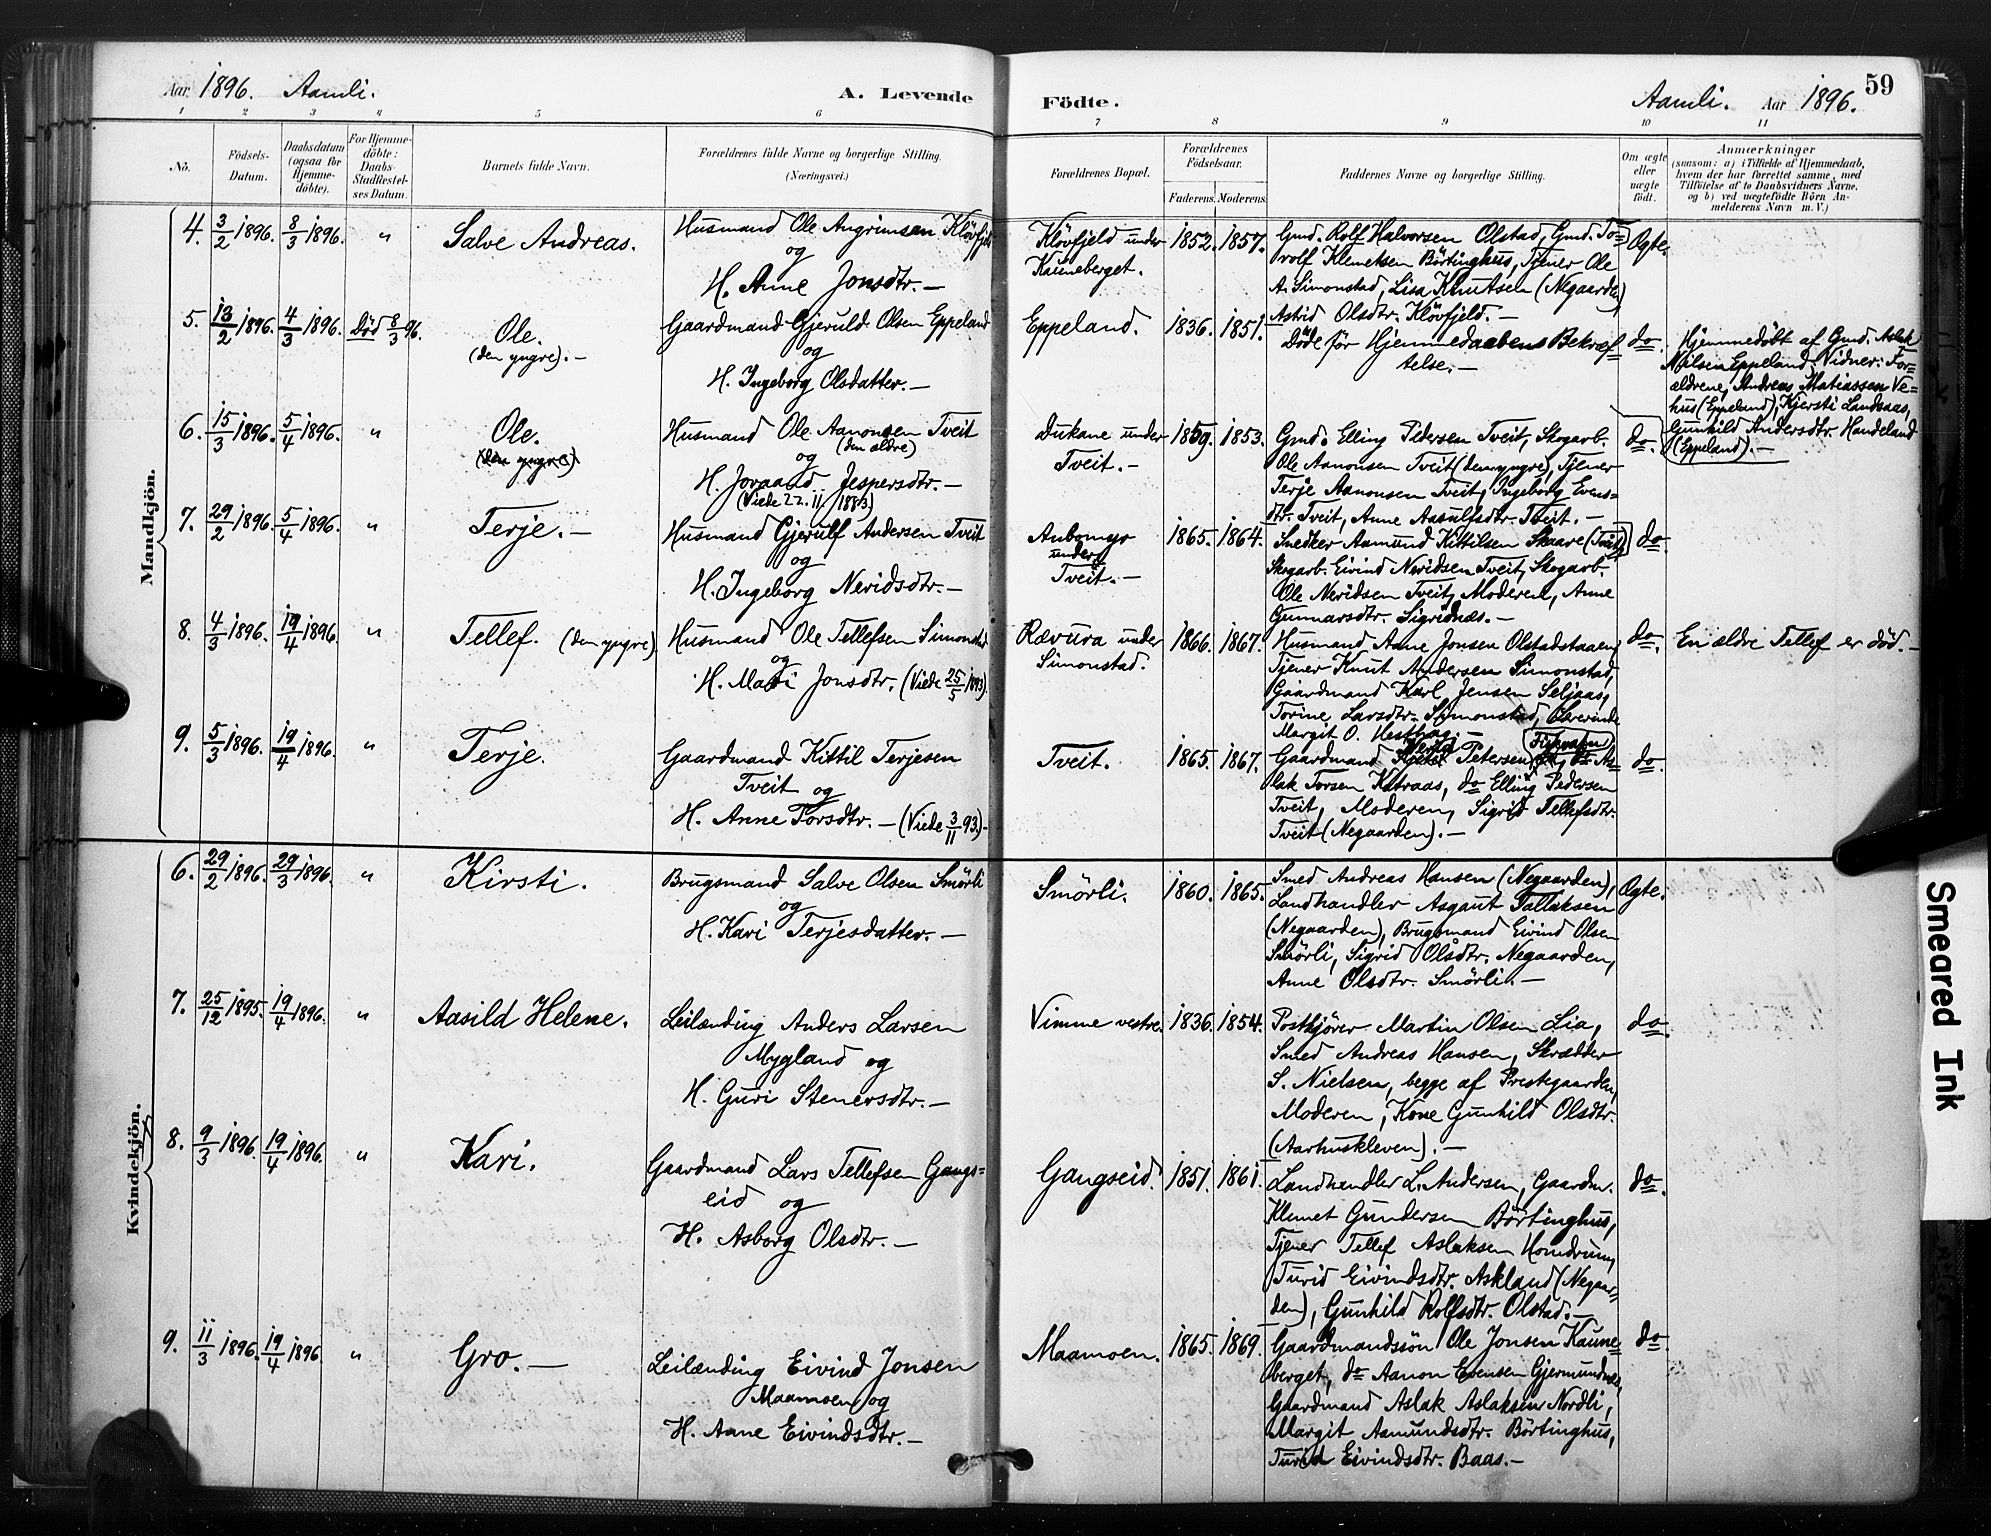 Aar 1896. Aamli. A. Levende
Födte. Aamli. Aar 1896. 59
1 2 3 4 5 6 7 8 9 10 11
No. Födsels-Datum. Daabsdatum (ogsaa for Hjemme-döbte). For Hjemme-döbte: Daabs-Stadfæstel-ses Datum. Barnets fulde Navn. Forældrenes fulde Navne og borgerlige Stilling. (Næringsvei.) Forældrenes Bopæl. Forældrenes Födselsaar. Faderens. Moderens. Faddernes Navne og borgerlige Stilling. Om ægte eller uægte födt. Anmærkninger
(saasom: a) i Tilfælde af Hjemmedaab,
hvem der har forrettet samme, med
Tilföielse af to Daabsvidners Navne,
og b) ved uægtefödte Börn An-
melderens Navn m. V.)
Mandkjön.
4. 3/2 1896. 8/3 1896. " Salve Andreas.
Husmand Ole Angrimsen Klövfjeld
og
H. Anne Jonsdtr. —
Klövfjeld under
Kauneberget.
1852. 1857.
Gmd. Rolf Halvorsen Olstad, Gmd. To=
rolf Klemetsen Börtinghus, Tjener Ole
A. Simonstad, Lisa Knutsen (Negaarden)
Astrid Olsdtr. Klövfjeld. —
Ægte.
5. 13/2 1896. 4/3 1896. Död 8/3 96. Ole.
(den yngre). —
Gaardmand Gjeruld Olsen Eppeland
og
H. Ingeborg Olsdatter. —
Eppeland. 1836. 1851.
Döde för Hjemmedaabens Bekræf=
telse. —
do.
Hjemmedöbt af Gmd. Aslak
Nilsen Eppeland, Vidner: For=
ældrene, Andreas Matiassen Ve=
hus (Eppeland), Kjersti Landsaas,
Gunhild Andersdtr. Handeland
(Eppeland). —
6. 15/3 1896. 5/4 1896. " Ole.
(den yngre)
Husmand Ole Aanonsen Tveit
(den ældre)
og
H. Jovaand Jespersdtr. —
(Viede 22.11 1883)
Dukane under
Tveit. —
1859. 1853.
Gmd. Elling Pedersen Tveit, Skogarb.
Ole Aanonsen Tveit (den yngre), Tjener
Terje Aanonsen Tveit, Ingeborg Evens=
dtr. Tveit, Anne Aasulfsdtr. Tveit. —
do.
7. 29/2 1896. 5/4 1896. " Terje. —
Husmand Gjerulf Andersen Tveit
og
H. Ingeborg Neridsdtr. —
under
Tveit. —
1865. 1864.
Snedker Aamund Kittilsen Skaare (Tveit)
Skogarb. Eivind Neridsen Tveit, Skogarb.
Ole Neridsen Tveit, Moderen, Anne
Gunnarsdtr. Sigridnæs. —
do.
8. 4/3 1896. 19/4 1896. " Tellef. (den yngre)
Husmand Ole Tellefsen Simonstad
og
H. Mari Jonsdtr. (Viede 25/5 1893).
Rævura under
Simonstad.
1866. 1867.
Husmand Aane Jonsen Olstadstaaen,
Tjener Knut Andersen Simonstad,
Gaardmand Karl Jensen Seljaas,
Torine Larsdtr. Simonstad, Lærerinde
Margit O. Hesthag. —
do. En ældre Tellef er död. —
9. 5/3 1896. 19/4 1896. " Terje.
Gaardmand Kittil Terjesen
Tveit og
H. Anne Torsdtr. — (Viede 3/11 93.) —
Tveit. 1865. 1867.
Gaardmand Petersen, do As=
lak Torsen Katraas, do Elling Pedersen
Tveit, Moderen, Sigrid Tellefsdtr.
Tveit (Negaarden). —
do.
Kvindekjön.
6. 29/2 1896. 29/3 1896. " Kirsti.
Brugsmand Salve Olsen Smörli
og
H. Kari Terjesdatter. —
Smörli. 1860. 1865.
Smed Andreas Hansen (Negaarden),
Landhandler Asgaut Tallaksen
(Negaarden), Brugsmand Eivind Olsen
Smörli, Sigrid Olsdtr. Negaarden,
Anne Olsdtr. Smörli. —
Ægte.
7. 25/12 1895. 19/4 1896. " Aasild Helene.
Leilænding Anders Larsen
Mygland og
H. Guri Stenersdtr. —
Vimme vestre. 1836. 1854.
Postkjörer Martin Olsen Lia,
Smed Andreas Hansen, Skrædder
S. Nielsen, begge af Prestegaarden,
Moderen, Kone Gunhild Olsdtr.
(Aarhuskleven). —
do.
8. 9/3 1896. 19/4 1896. " Kari.
Gaardmand Lars Tellefsen Gangs=
eid og
H. Asborg Olsdtr. —
Gangseid. 1851. 1861.
Landhandler L. Andersen, Gaardm.
Klemet Gundersen Börtinghus,
Tjener Tellef Aslaksen Homdrum,
Turid Eivindsdtr. Askland (Negaar=
den), Gunhild Rolfsdtr. Olstad. —
do.
9. 11/3 1896. 19/4 1896. " Gro. —
Leilænding Eivind Jonsen
Maamoen og
H. Aane Eivindsdtr. —
Maamoen. 1865. 1869.
Gaardmandssön Ole Jonsen Kaune=
berget, do Aanon Evensen Gjermundnes,
Gaardmand Aslak Aslaksen Nordli,
Margit Aamundsdtr. Börtinghus,
Turid Eivindsdtr. Baas. —
do.
Smeared Ink